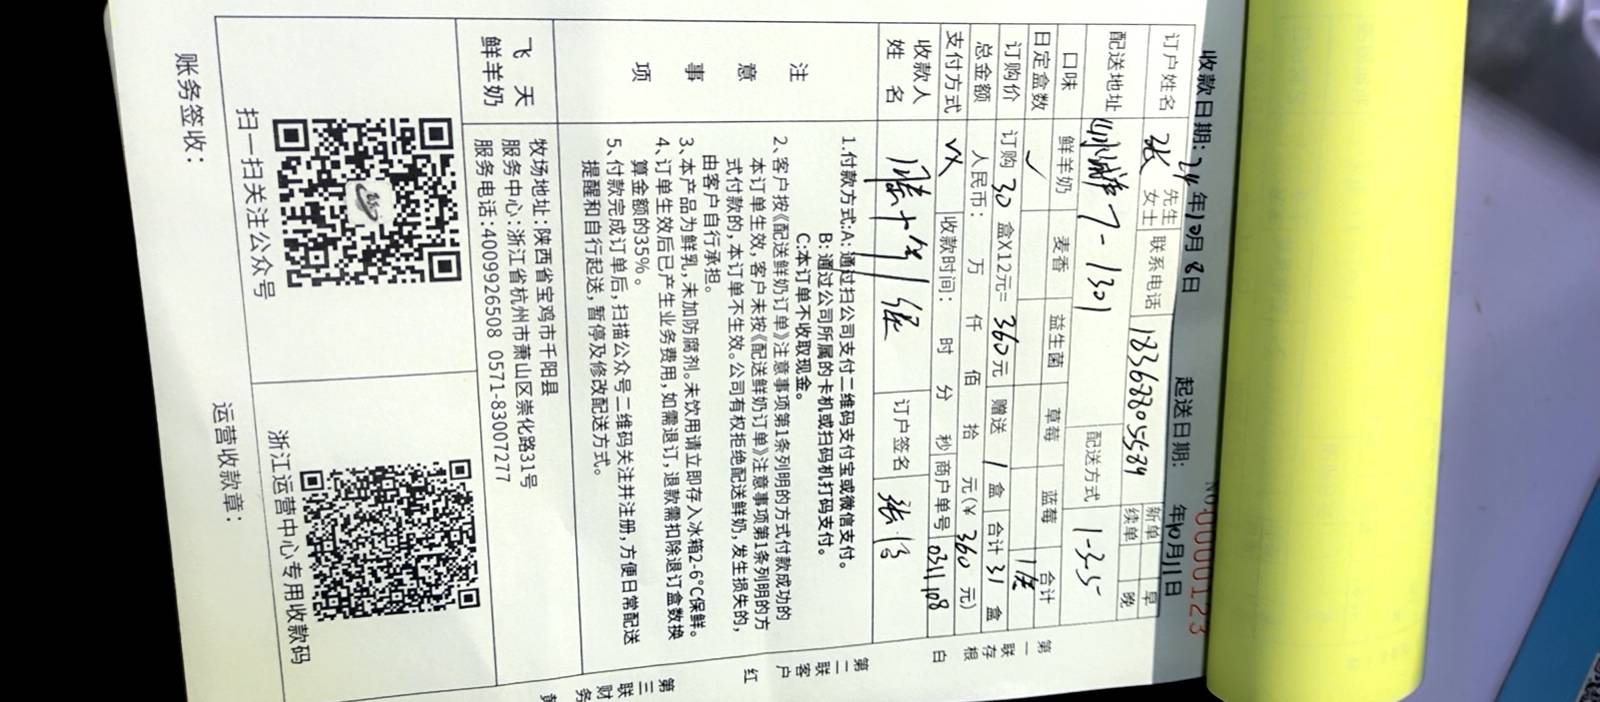 NO 0000123
收款日期：24年10月8日 起送日期： 年10月11日
订户姓名 张 先生 女士 联系电话 18368805589 新单 续单 早 晚
配送地址 7-1301 配送方式 1-3-5
口味 鲜羊奶 麦香 益生菌 草莓 蓝莓 合计
日定盒数 ✓
订购价 订购30盒X12元=360元 赠送1盒 合计31盒
总金额 人民币： 万 仟 佰 拾 元(￥360元)
支付方式 VX 收款时间： 时 分 秒 商户单号 0311108
收款人姓名 订户签名
注意事项
1.付款方式:A:通过扫公司支付二维码支付宝或微信支付。
B:通过公司所属的卡机或扫码机打码支付。
C:本订单不收取现金。
2、客户按《配送鲜奶订单》注意事项第1条列明的方式付款成功的
本订单生效,客户未按《配送鲜奶订单》注意事项第1条列明的方
式付款的,本订单不生效。公司有权拒绝配送鲜奶,发生损失的,
由客户自行承担。
3、本产品为鲜乳,未加防腐剂。未饮用请立即存入冰箱2-6°C保鲜。
4、订单生效后已产生业务费用,如需退订,退款需扣除退订盒数换
算金额的35%。
5、付款完成订单后,扫描公众号二维码关注并注册,方便日常配送
提醒和自行起送,暂停及修改配送方式。
飞天
鲜羊奶
牧场地址:陕西省宝鸡市千阳县
服务中心:浙江省杭州市萧山区崇化路31号
服务电话:4009926508 0571-83007277
扫一扫关注公众号
浙江运营中心专用收款码
账务签收： 运营收款章：
第一联存根 白
第二联客户 红
第三联财务